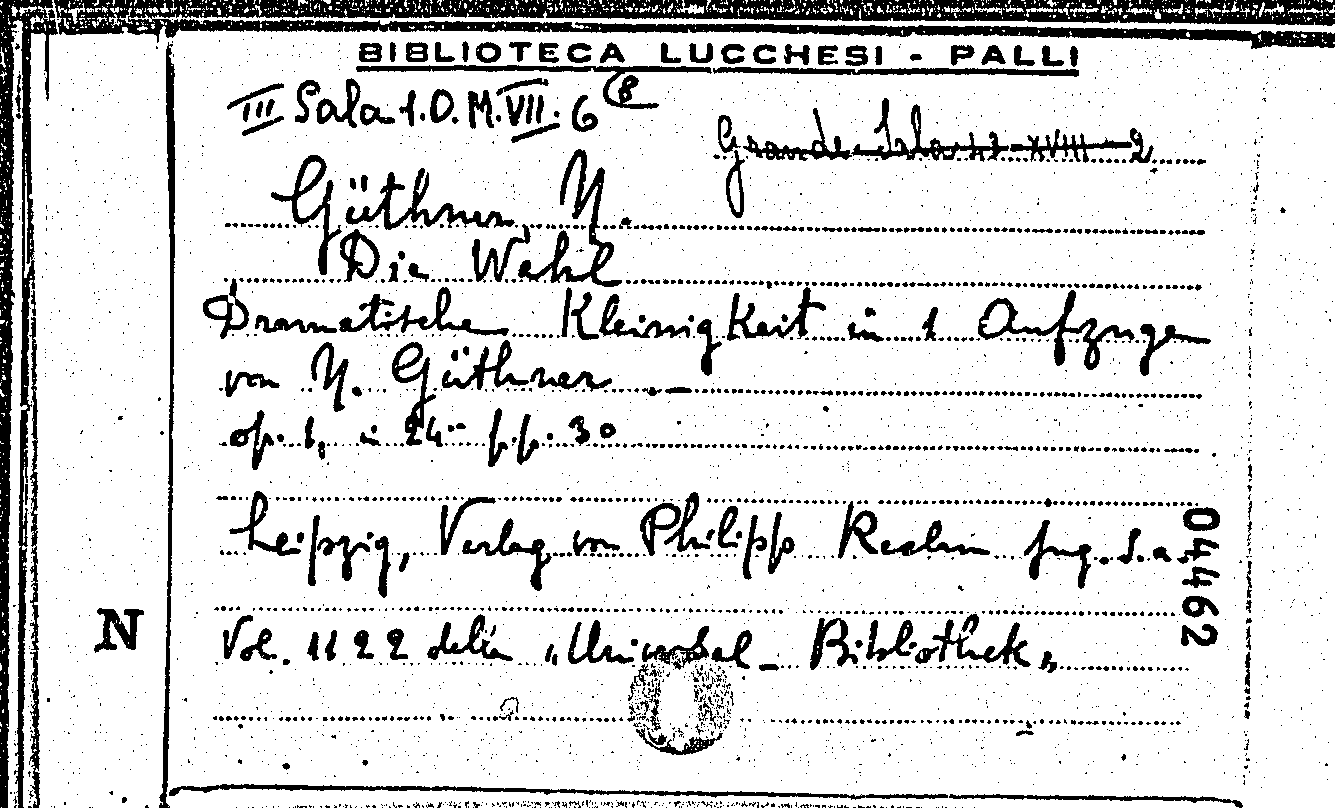 BIBLIOTECA LUCCHESI - PALLI
III Sala 1.O.M.VII.6 (8
Grande Sala 12-XVIII-2
Güthner, N.
Die Wahl
Dramatische Kleinigkeit in 1 Aufzuge
von N. Güthner. -
op. 1, in 24° p.p. 30
Leipzig, Verlag von Philipp Reclam jug. s.a.
04462
N
Vol. 1122 della "Universal - Bibliothek"